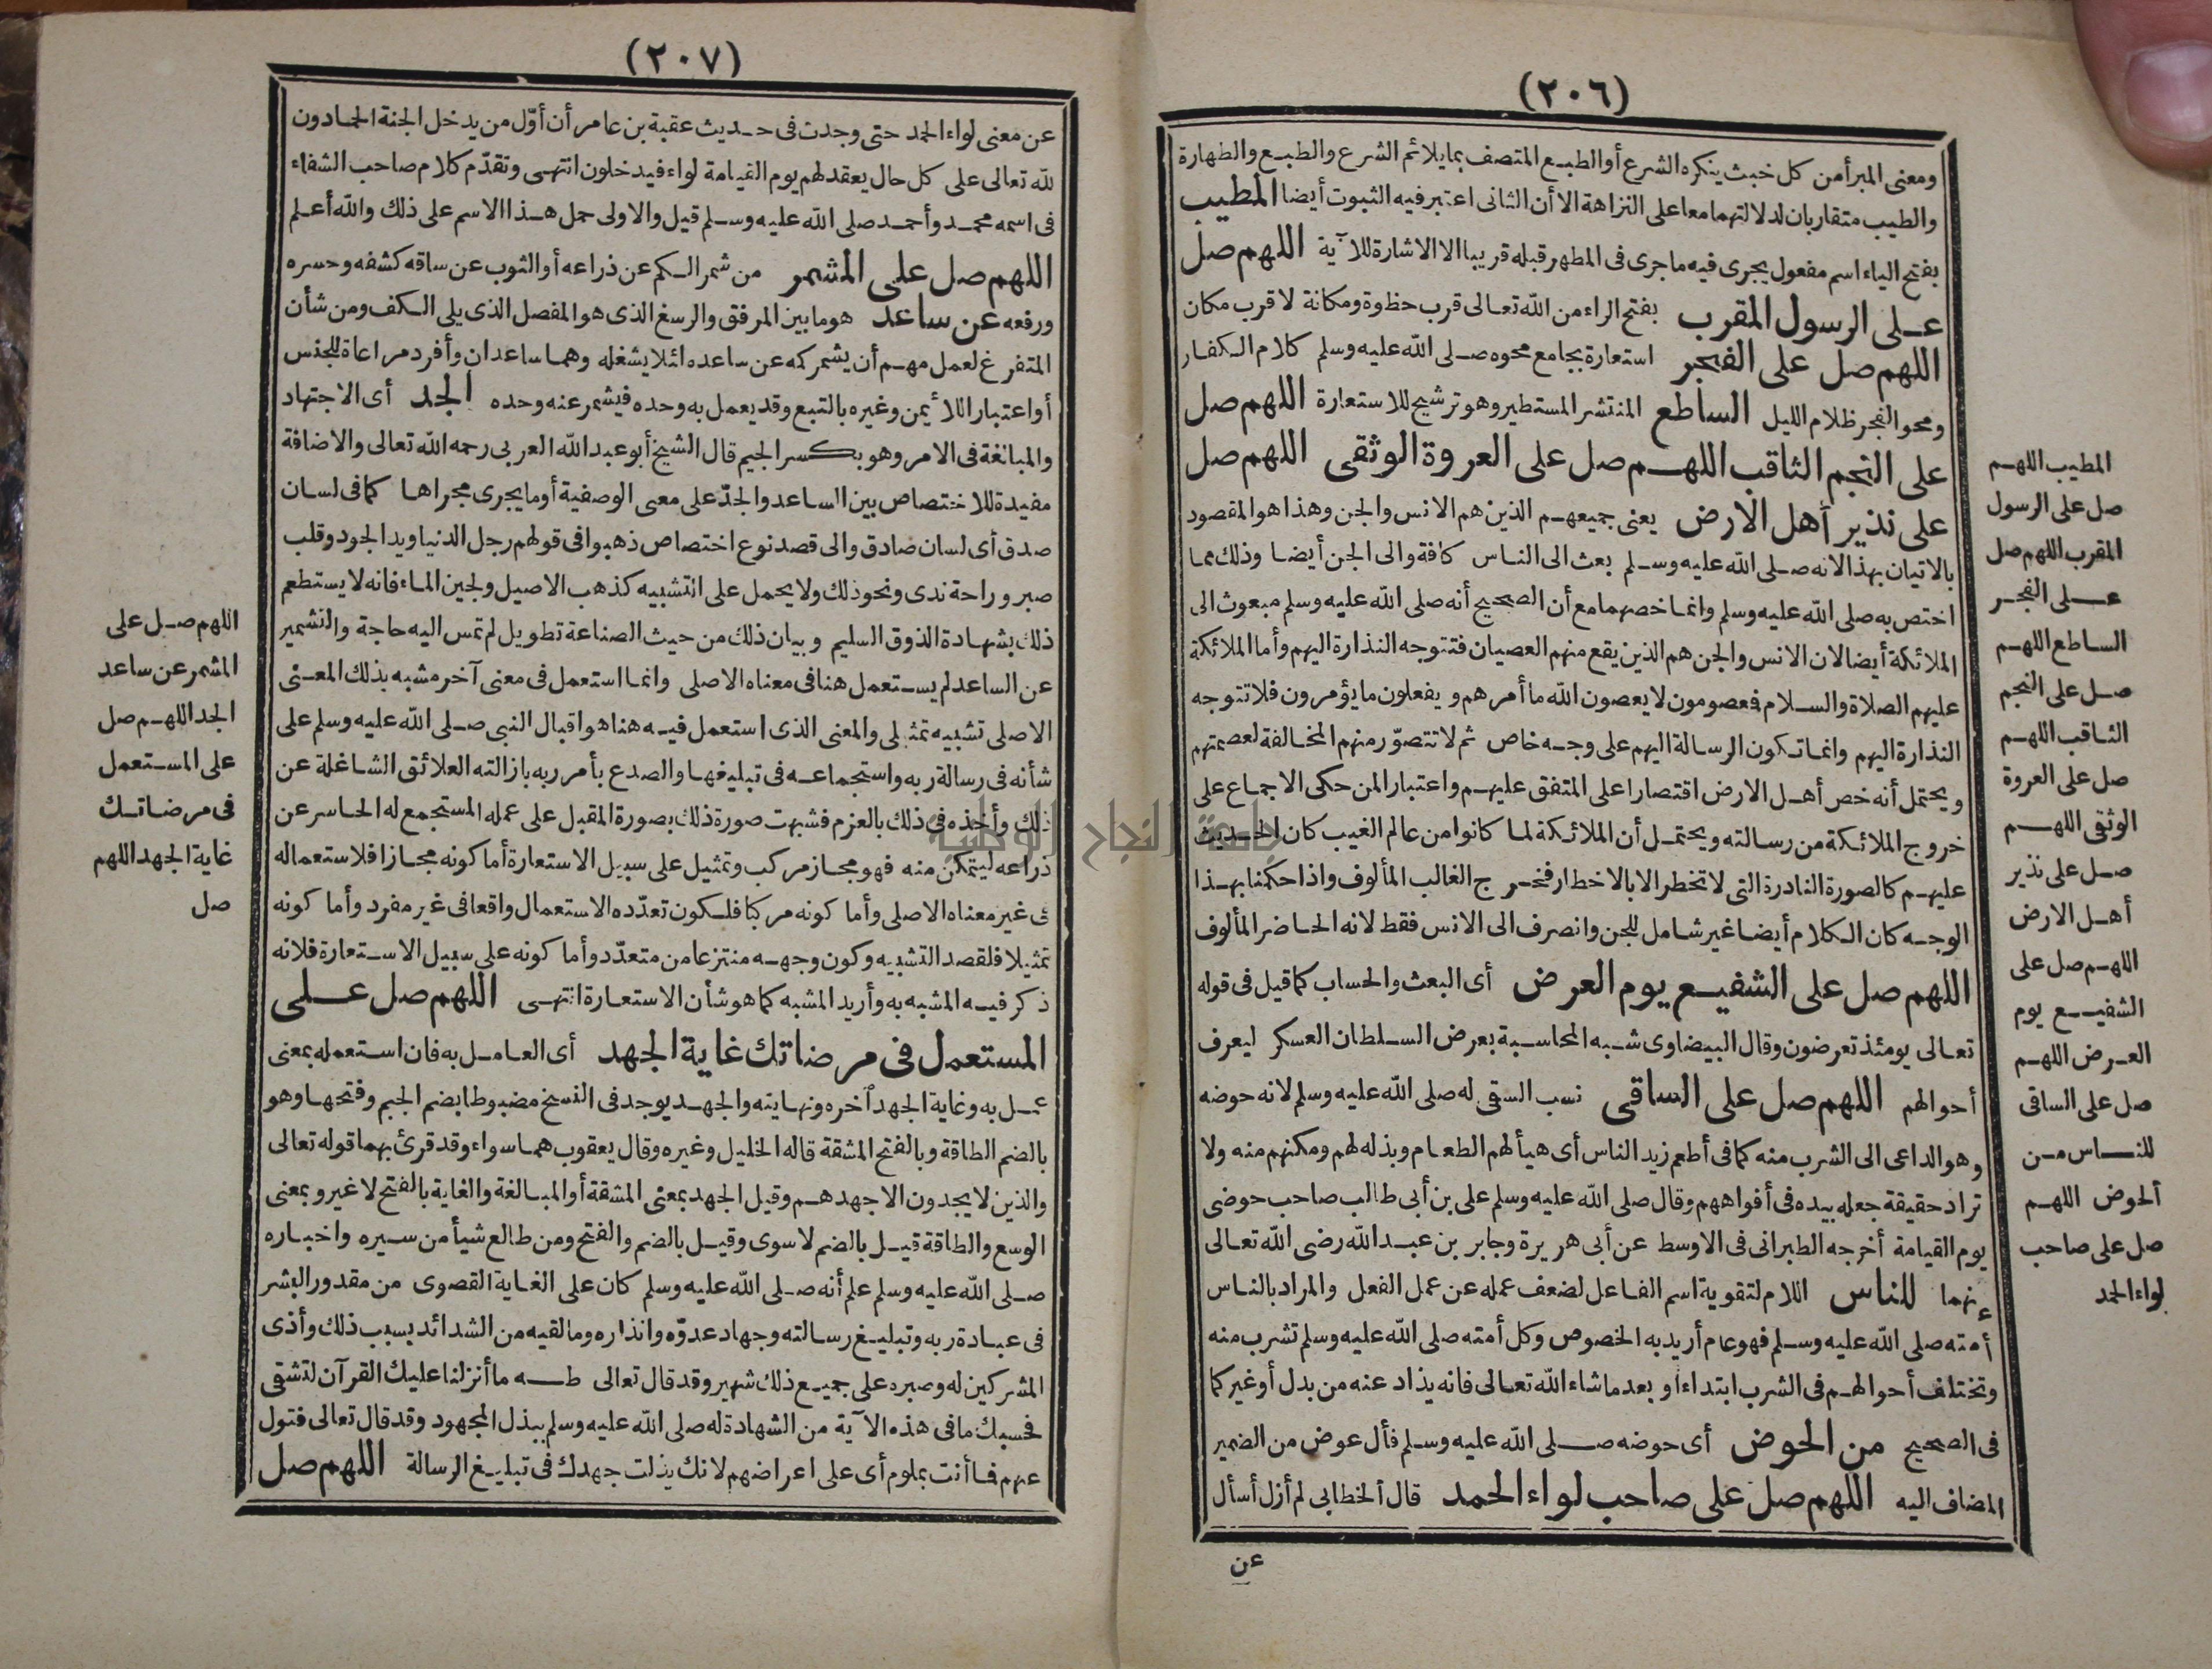 (٢٠٦)
ومعنى المبرأ من كل خبث ينكره الشرع أو الطبع المتصف بما يلائم الشرع والطبع والطهارة
والطيب متقاربان لدلالتهما معا على النزاهة الا أن الثانى اعتبر فيه الثبوت أيضا المطيب
بفتح الياء اسم مفعول يجرى فيه ما جرى فى المطهر قبله قريبا الا الاشارة للآية اللهم صل
على الرسول المقرب بفتح الراء من الله تعالى قرب حظوة ومكانة لا قرب مكان
اللهم صل على الفجر استعارة بجامع محوه صلى الله عليه وسلم كلام الكفار
ومحو الفجر ظلام الليل الساطع المنتشر المستطير وهو ترشيح للاستعارة اللهم صل
على النجم الثاقب اللهم صل على العروة الوثقى اللهم صل
على نذير أهل الارض يعنى جميعهم الذين هم الانس والجن وهذا هو المقصود
بالاتيان بهذا لانه صلى الله عليه وسلم بعث الى الناس كافة والى الجن أيضا وذلك مما
اختص به صلى الله عليه وسلم وانما خصهما مع أن الصحيح أنه صلى الله عليه وسلم مبعوث الى
الملائكة أيضا لان الانس والجن هم الذين يقع منهم العصيان فتتوجه النذارة اليهم وأما الملائكة
عليهم الصلاة والسلام فعصومون لا يعصون الله ما أمرهم ويفعلون ما يؤمرون فلا تتوجه
النذارة اليهم وانما تكون الرسالة اليهم على وجه خاص ثم لا تتصوّر منهم المخالفة لعصمتهم
ويحتمل أنه خص أهل الارض اقتصارا على المتفق عليهم واعتبار المن حكى الاجماع على
خروج الملائكة من رسالته ويحتمل أن الملائكة لما كانوا من عالم الغيب كان الحديث
عليهم كالصورة النادرة التى لا تخطر الا بالاخطار فخرج الغالب المألوف واذا حكمنا بهذا
الوجه كان الكلام أيضا غير شامل للجن وانصرف الى الانس فقط لانه الحاضر المألوف
اللهم صل على الشفيع يوم العرض أى البعث والحساب كما قيل فى قوله
تعالى يومئذ تعرضون وقال البيضاوى شبه المحاسبة بعرض السلطان العسكر ليعرف
أحوالهم اللهم صل على الساقى نسب السقى له صلى الله عليه وسلم لانه حوضه
وهو الداعى الى الشرب منه كما فى أطعم زيد الناس أى هيأ لهم الطعام وبذله لهم ومكنهم منه ولا
تراد حقيقة جعله بيده فى أفواههم وقال صلى الله عليه وسلم على بن أبى طالب صاحب حوضى
يوم القيامة أخرجه الطبرانى فى الاوسط عن أبى هريرة وجابر بن عبد الله رضى الله تعالى
عنهما للناس اللام لتقوية اسم الفاعل لضعف عمله عن عمل الفعل والمراد بالناس
أمته صلى الله عليه وسلم فهو عام أريد به الخصوص وكل أمته صلى الله عليه وسلم تشرب منه
وتختلف أحوالهم فى الشرب ابتداء أو بعد ما شاء الله تعالى فانه يذاد عنه من بدل أو غير كما
فى الصحيح من الحوض أى حوضه صلى الله عليه وسلم فأل عوض من الضمير
المضاف اليه اللهم صل على صاحب لواء الحمد قال الخطابى لم أزل أسأل
عن
المطيب اللهم
صل على الرسول
المقرب اللهم صل
على الفجر
الساطع اللهم
صل على النجم
الثاقب اللهم
صل على العروة
الوثقى اللهم
صل على نذير
أهل الارض
اللهم صل على
الشفيع يوم
العرض اللهم
صل على الساقى
للناس من
الحوض اللهم
صل على صاحب
لواء الحمد
(٢٠٧)
عن معنى لواء الحمد حتى وجدت فى حديث عقبة بن عامر أن أوّل من يدخل الجنة الحمادون
لله تعالى على كل حال يعقد لهم يوم القيامة لواء فيدخلون انتهى وتقدّم كلام صاحب الشفاء
فى اسمه محمد وأحمد صلى الله عليه وسلم قيل والاولى حمل هذا الاسم على ذلك والله أعلم
اللهم صل على المشمر من شمر الكم عن ذراعه أو الثوب عن ساقه كشفه وحسره
ورفعه عن ساعد هو ما بين المرفق والرسغ الذى هو المفصل الذى يلى الكف ومن شأن
المتفرغ لعمل مهم أن يشمر كمه عن ساعده لئلا يشغله وهما ساعدان وأفرد مراعاة للجنس
أو اعتبار اللأيمن وغيره بالتبع وقد يعمل به وحده فيشمر عنه وحده الجد أى الاجتهاد
والمبالغة فى الامر وهو بكسر الجيم قال الشيخ أبو عبد الله العربى رحمه الله تعالى والاضافة
مفيدة للاختصاص بين الساعد والجدّ على معنى الوصفية أو ما يجرى مجراها كما فى لسان
صدق أى لسان صادق والى قصد نوع اختصاص ذهبوا فى قولهم رجل الدنيا ويد الجود وقلب
صبر وراحة ندى ونحو ذلك ولا يحمل على التشبيه كذهب الاصيل ولجين الماء فانه لا يستطعم
ذلك بشهادة الذوق السليم وبيان ذلك من حيث الصناعة تطويل لم تمس اليه حاجة والتشمير
عن الساعد لم يستعمل هنا فى معناه الاصلى وانما استعمل فى معنى آخر مشبه بذلك المعنى
الاصلى تشبيه تمثيلى والمعنى الذى استعمل فيه هنا هو اقبال النبى صلى الله عليه وسلم على
شأنه فى رسالة ربه واستجماعه فى تبليغها والصدع بأمر ربه بازالته العلائق الشاغلة عن
ذلك وأخذه فى ذلك بالعزم فشبهت صورة ذلك بصورة المقبل على عمله المستجمع له الحاسر عن
ذراعه ليتمكن منه فهو مجاز مركب وتمثيل على سبيل الاستعارة أما كونه مجازا فلاستعماله
فى غير معناه الاصلى وأما كونه مركبا فلكون تعدّده الاستعمال واقعا فى غير مفرد وأما كونه
تمثيلا فلقصد التشبيه وكون وجهه منتزعا من متعدّد وأما كونه على سبيل الاستعارة فلانه
ذكر فيه المشبه به وأريد المشبه كما هو شأن الاستعارة انتهى اللهم صل على
المستعمل فى مرضاتك غاية الجهد أى العامل به فان استعمله بمعنى
عمل به وغاية الجهد آخره ونهايته والجهد يوجد فى النسخ مضبوطا بضم الجيم وفتحها وهو
بالضم الطاقة وبالفتح المشقة قاله الخليل وغيره وقال يعقوب هما سواء وقد قرئ بهما قوله تعالى
والذين لا يجدون الا جهدهم وقيل الجهد بمعنى المشقة أو المبالغة والغاية بالفتح لا غير وبمعنى
الوسع والطاقة قيل بالضم لا سوى وقيل بالضم والفتح ومن طالع شيأ من سيره واخباره
صلى الله عليه وسلم علم أنه صلى الله عليه وسلم كان على الغاية القصوى من مقدور البشر
فى عبادة ربه وتبليغ رسالته وجهاد عدوّه وانذاره وما لقيه من الشدائد بسبب ذلك وأذى
المشركين له وصبره على جميع ذلك شهير وقد قال تعالى طه ما أنزلنا عليك القرآن لتشقى
فحسبك ما فى هذه الآية من الشهادة له صلى الله عليه وسلم ببذل المجهود وقد قال تعالى فتول
عنهم فما أنت بملوم أى على اعراضهم لانك بذلت جهدك فى تبليغ الرسالة اللهم صل
اللهم صل على
المشمر عن ساعد
الجد اللهم صل
على المستعمل
فى مرضاتك
غاية الجهد اللهم
صل
جامعة النجاح الوطنية